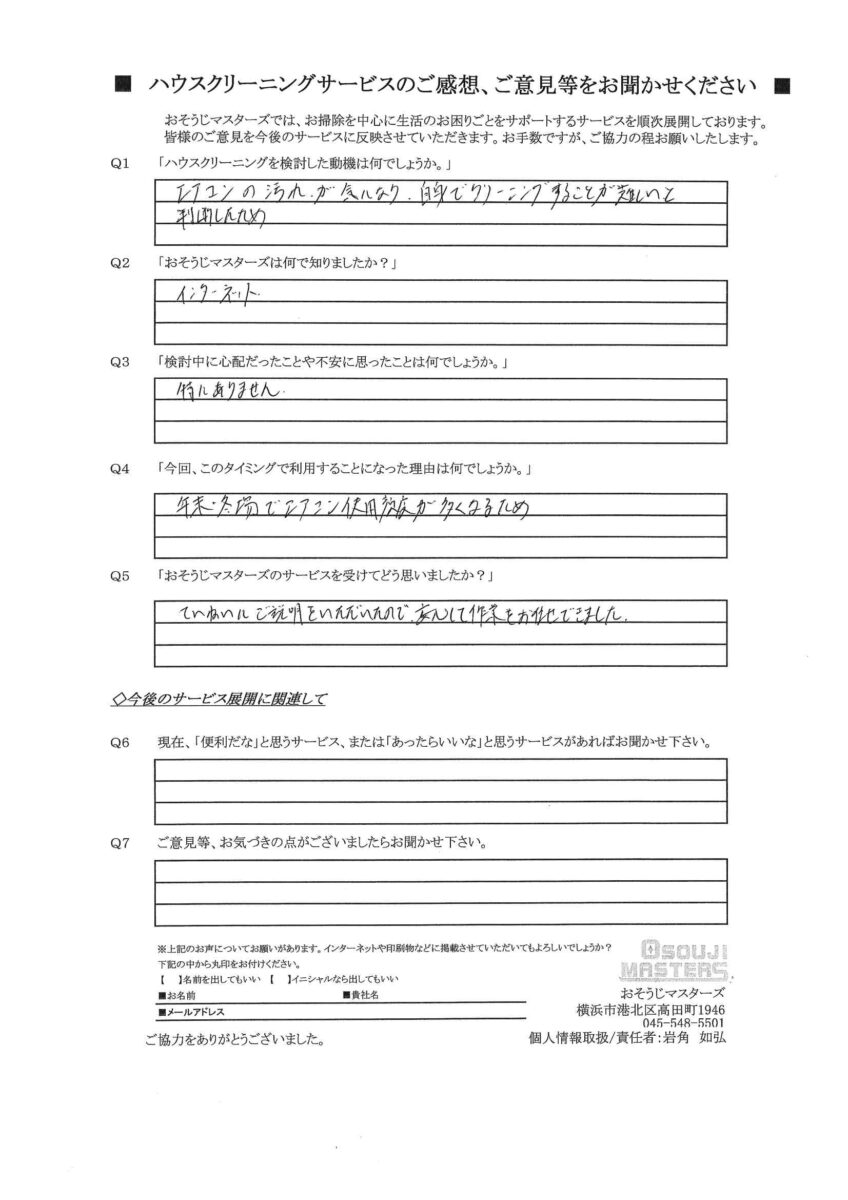 ■ ハウスクリーニングサービスのご感想、ご意見等をお聞かせください ■
おそうじマスターズでは、お掃除を中心に生活のお困りごとをサポートするサービスを順次展開しております。
皆様のご意見を今後のサービスに反映させていただきます。お手数ですが、ご協力の程お願いしたします。
Q1 「ハウスクリーニングを検討した動機は何でしょうか。」
エアコンの汚れが気になり、自身でクリーニングすることが難しいと
判断したため
Q2 「おそうじマスターズは何で知りましたか？」
インターネット
Q3 「検討中に心配だったことや不安に思ったことは何でしょうか。」
特にありません。
Q4 「今回、このタイミングで利用することになった理由は何でしょうか。」
年末・冬場でエアコン使用頻度が多くなるため
Q5 「おそうじマスターズのサービスを受けてどう思いましたか？」
ていねいにご説明をいただいたので、安心して作業をお任せできました。
◇今後のサービス展開に関連して
Q6 現在、「便利だな」と思うサービス、または「あったらいいな」と思うサービスがあればお聞かせ下さい。
Q7 ご意見等、お気づきの点がございましたらお聞かせ下さい。
※上記のお声についてお願いがあります。インターネットや印刷物などに掲載させていただいてもよろしいでしょうか？
下記の中から丸印をお付けください。
【　】名前を出してもいい 【　】イニシャルなら出してもいい
■お名前 ■貴社名
■メールアドレス
ご協力をありがとうございました。
OSOUJI
MASTERS
おそうじマスターズ
横浜市港北区高田町1946
045-548-5501
個人情報取扱/責任者：岩角　如弘